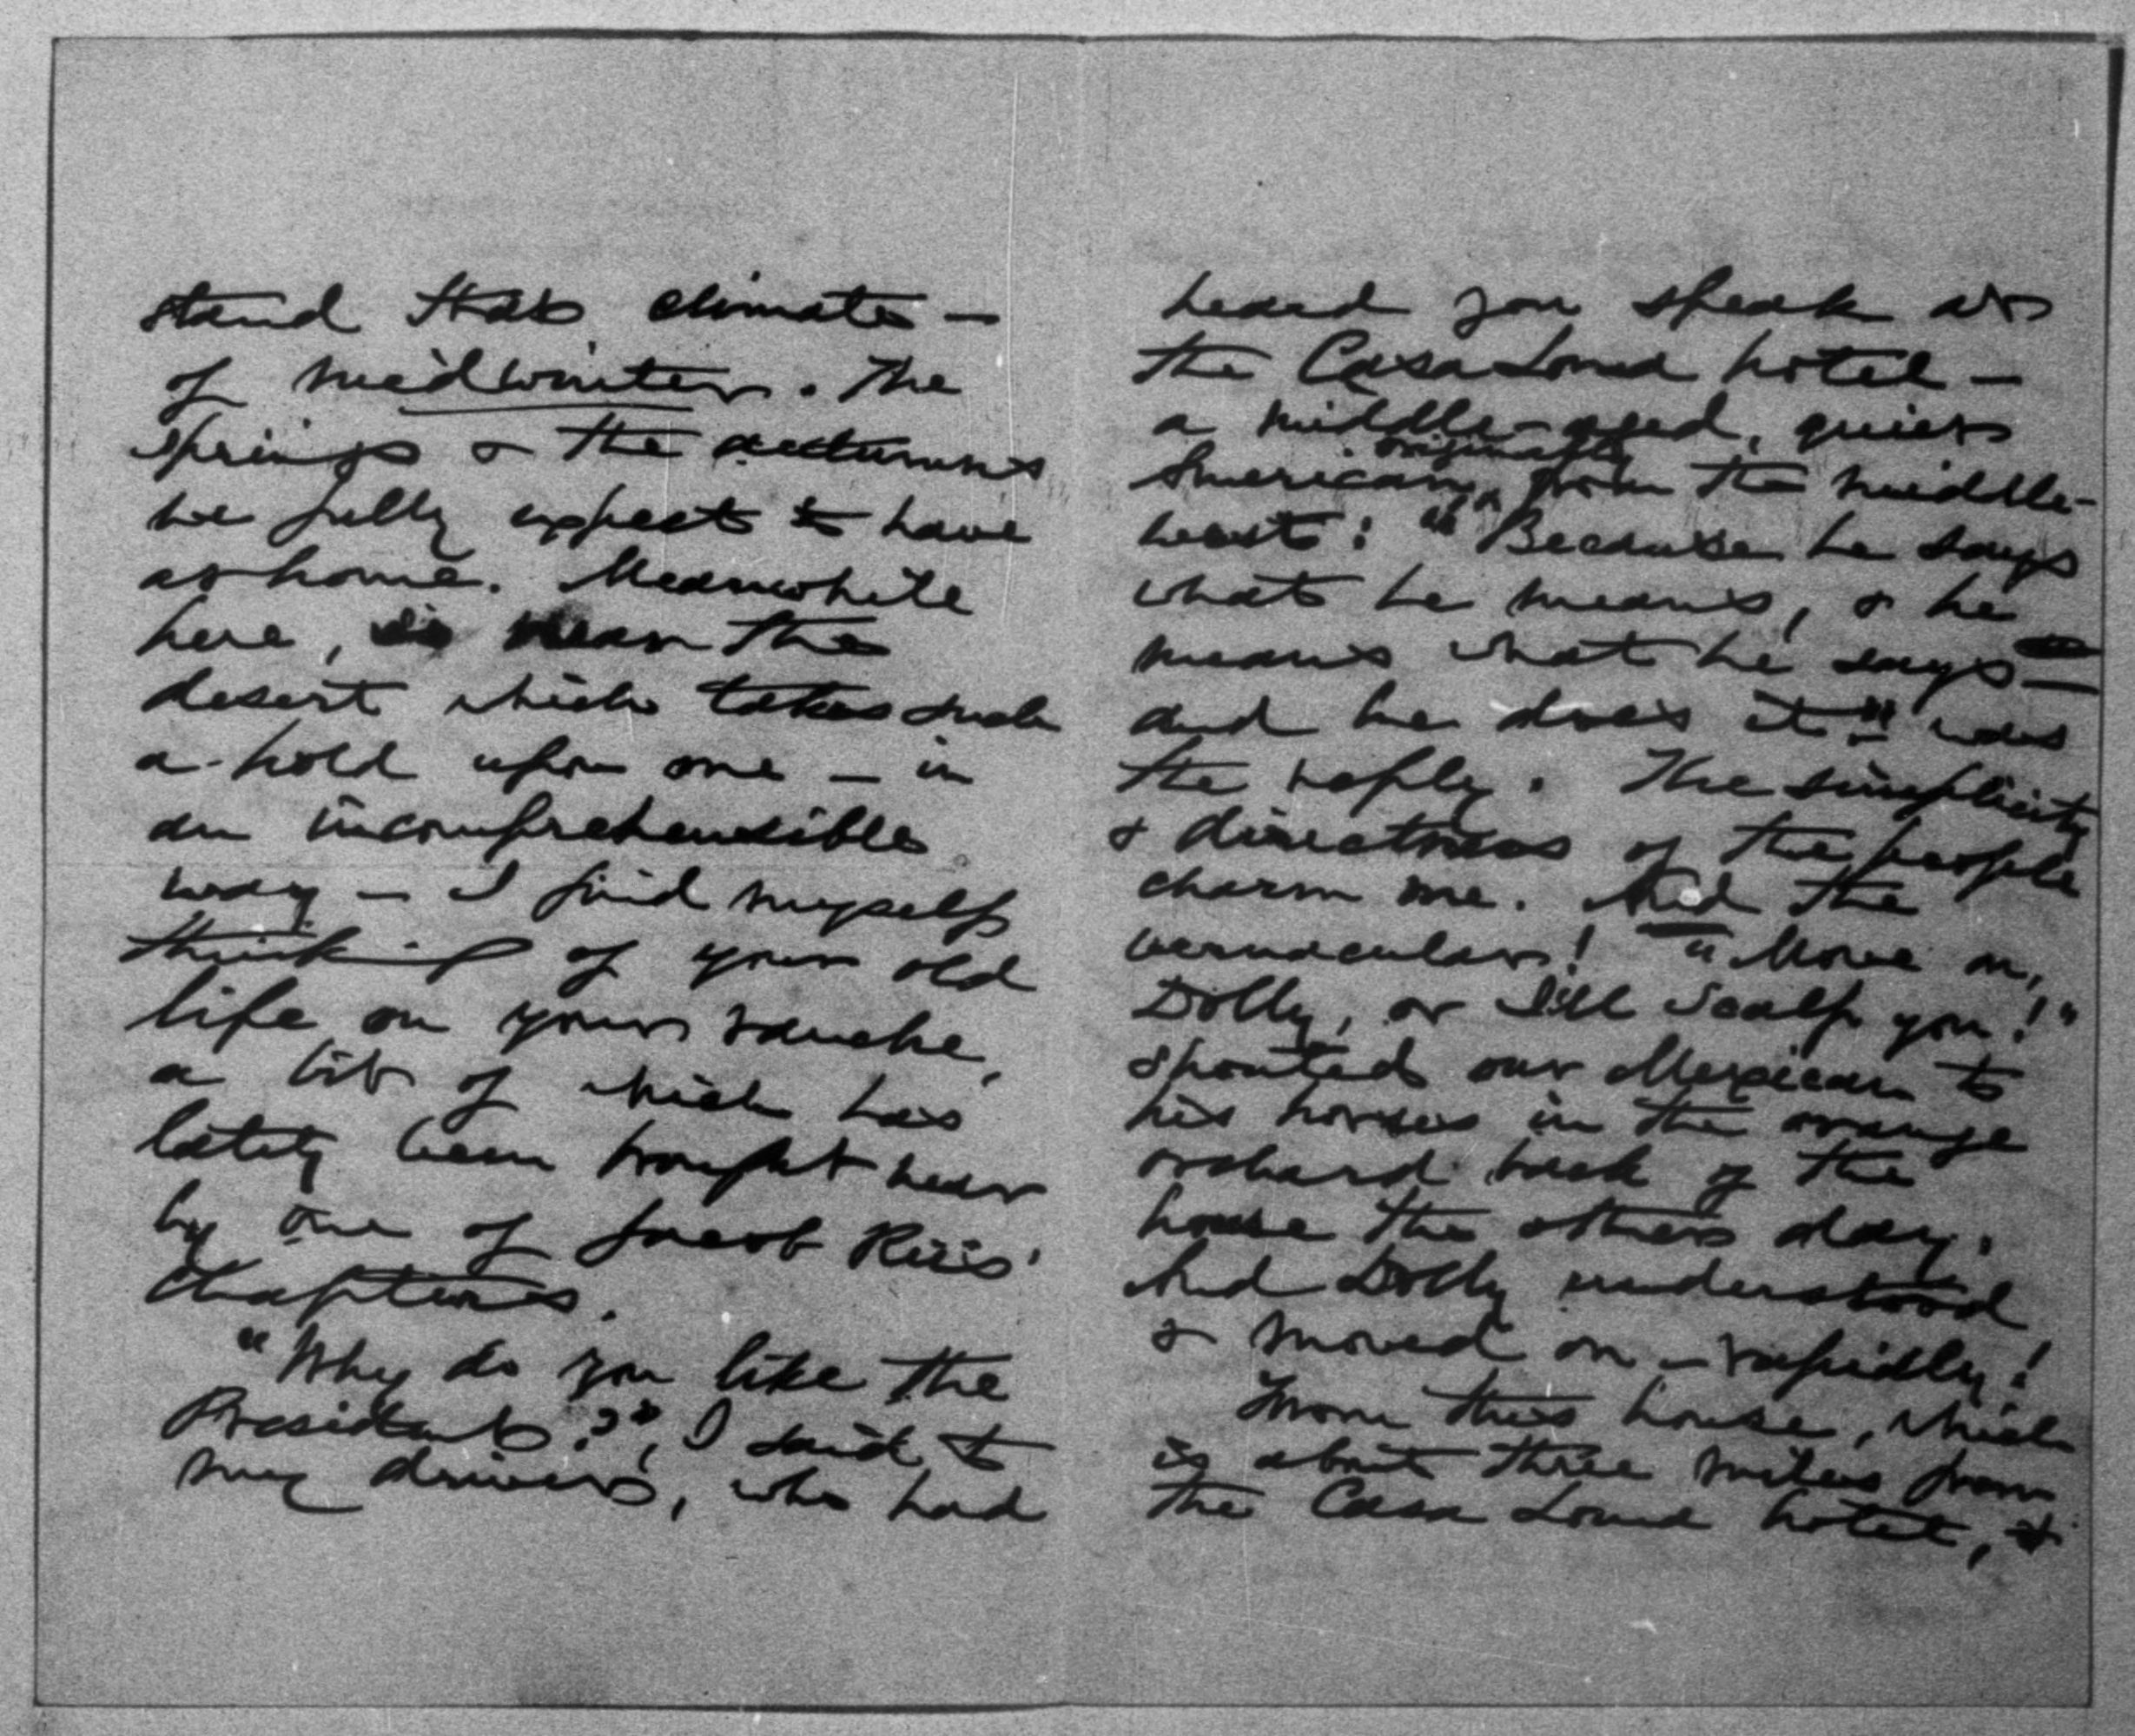 stand that climate —
of midwinter. The
springs & the autumns
we fully expect to have
at home. Meanwhile
here, so near the
desert which takes such
a hold upon one — in
an incomprehensible
way — I find myself
thinking of your old
life on your ranche,
a bit of which has
lately been brought near
by one of Jacob Riis'
chapters.
"Why do you like the
President?", I said to
my driver, who had
heard you speak at
the Casa Loma hotel —
a middle-aged, quiet
originally
American, from the middle-
west: "Because he says
what he means, & he
means what he says —
and he does it" was
the reply. The simplicity
& directness of the people
charm me. And the
vernacular! "Move on,
Dolly, or I'll scalp you!"
shouted our Mexican to
his horses in the orange
orchard back of the
house the other day.
And Dolly understood
& moved on — rapidly!
From this house, which
is about three miles from
the Casa Loma hotel, &